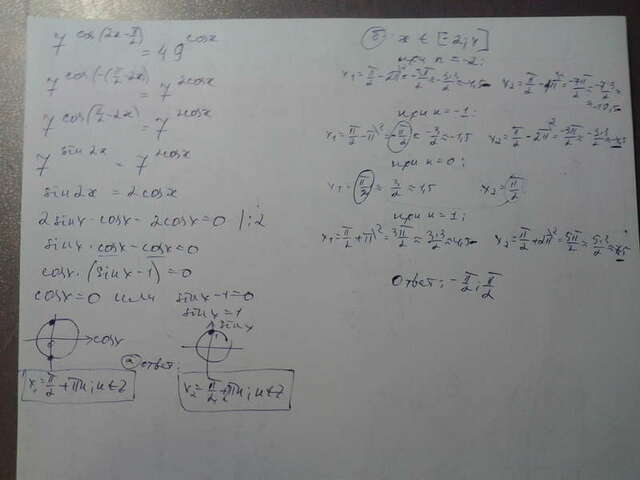 7^cos(2x-π/2) = 49^cosx
7^cos(-(π/2-2x)) = 7^2cosx
7^cos(π/2-2x) = 7^2cosx
7^sin2x = 7^2cosx
sin2x = 2cosx
2sinx·cosx-2cosx=0 |:2
sinx·cosx-cosx=0
cosx·(sinx-1)=0
cosx=0 или sinx-1=0
sinx=1
cosx
sinx
а ответ:
x₁=π/2+πn; n∈Z
x₂=π/2+2πn; n∈Z
б x∈[-2;4]
при n=-2:
при n=-1:
x₁=π/2-π=-π/2≈-3/2=-1,5
при n=0:
x₁=π/2≈3/2=1,5 x₂=π/2
при n=1:
x₁=π/2+π=3π/2≈3·3/2≈4,5 x₂=π/2+2π=5π/2≈5·3/2≈7,5
Ответ: -π/2; π/2